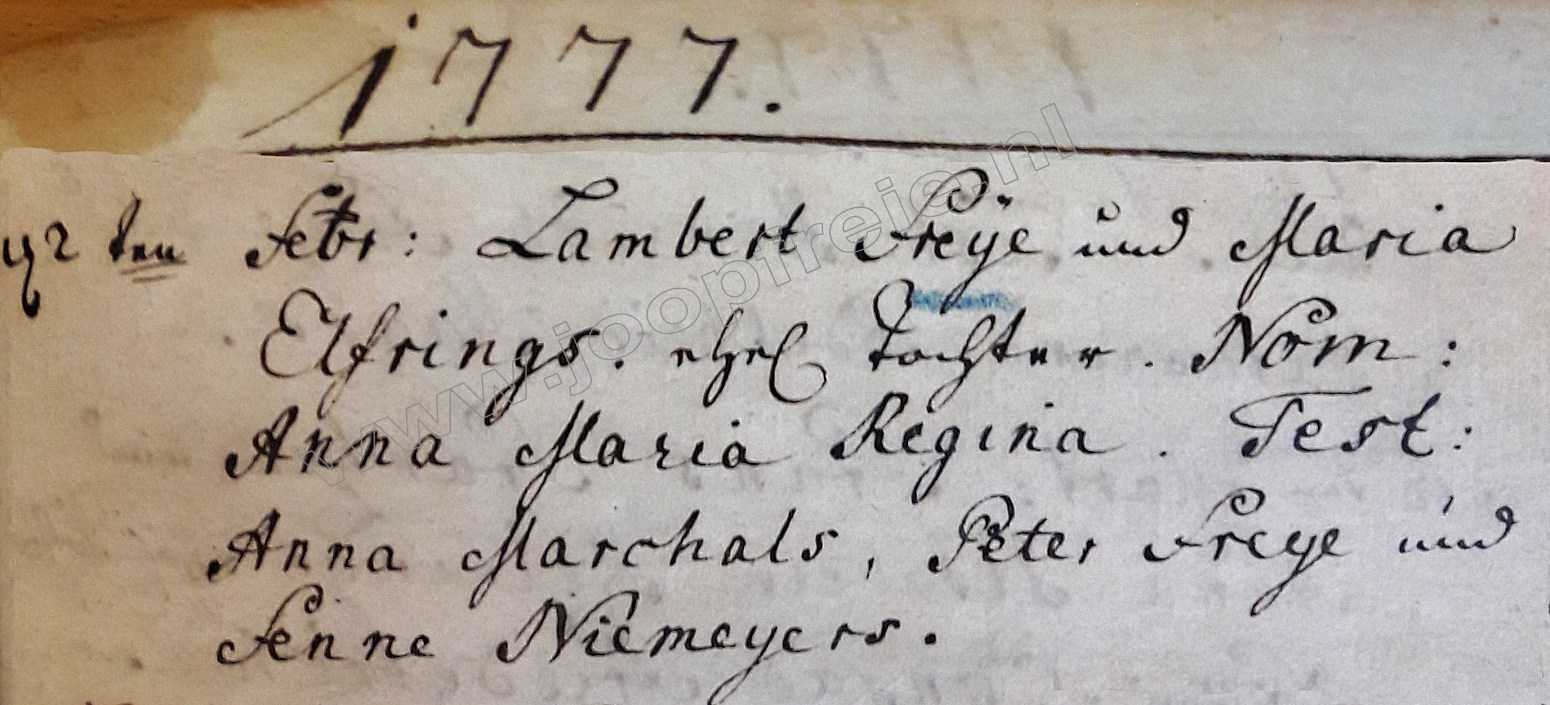 1777.
ten Febr: Lambert Freÿe und Maria
Elfrings. ehel Tochter. Nom:
Anna Maria Regina. Test:
Anna Marchals, Peter Freye und
Fenne Niemeyers.
www.joopfreie.nl